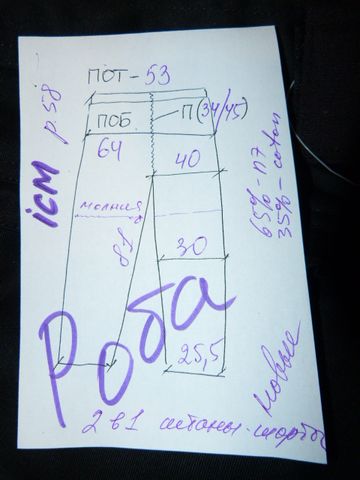 ПОТ - 53
ПОБ.
64
П(34/45)
40
молния
81
30
25,5
ІСМ р.58
65% - п7
35% - coton
Роба
Новые
2 в 1 штаны-шорты